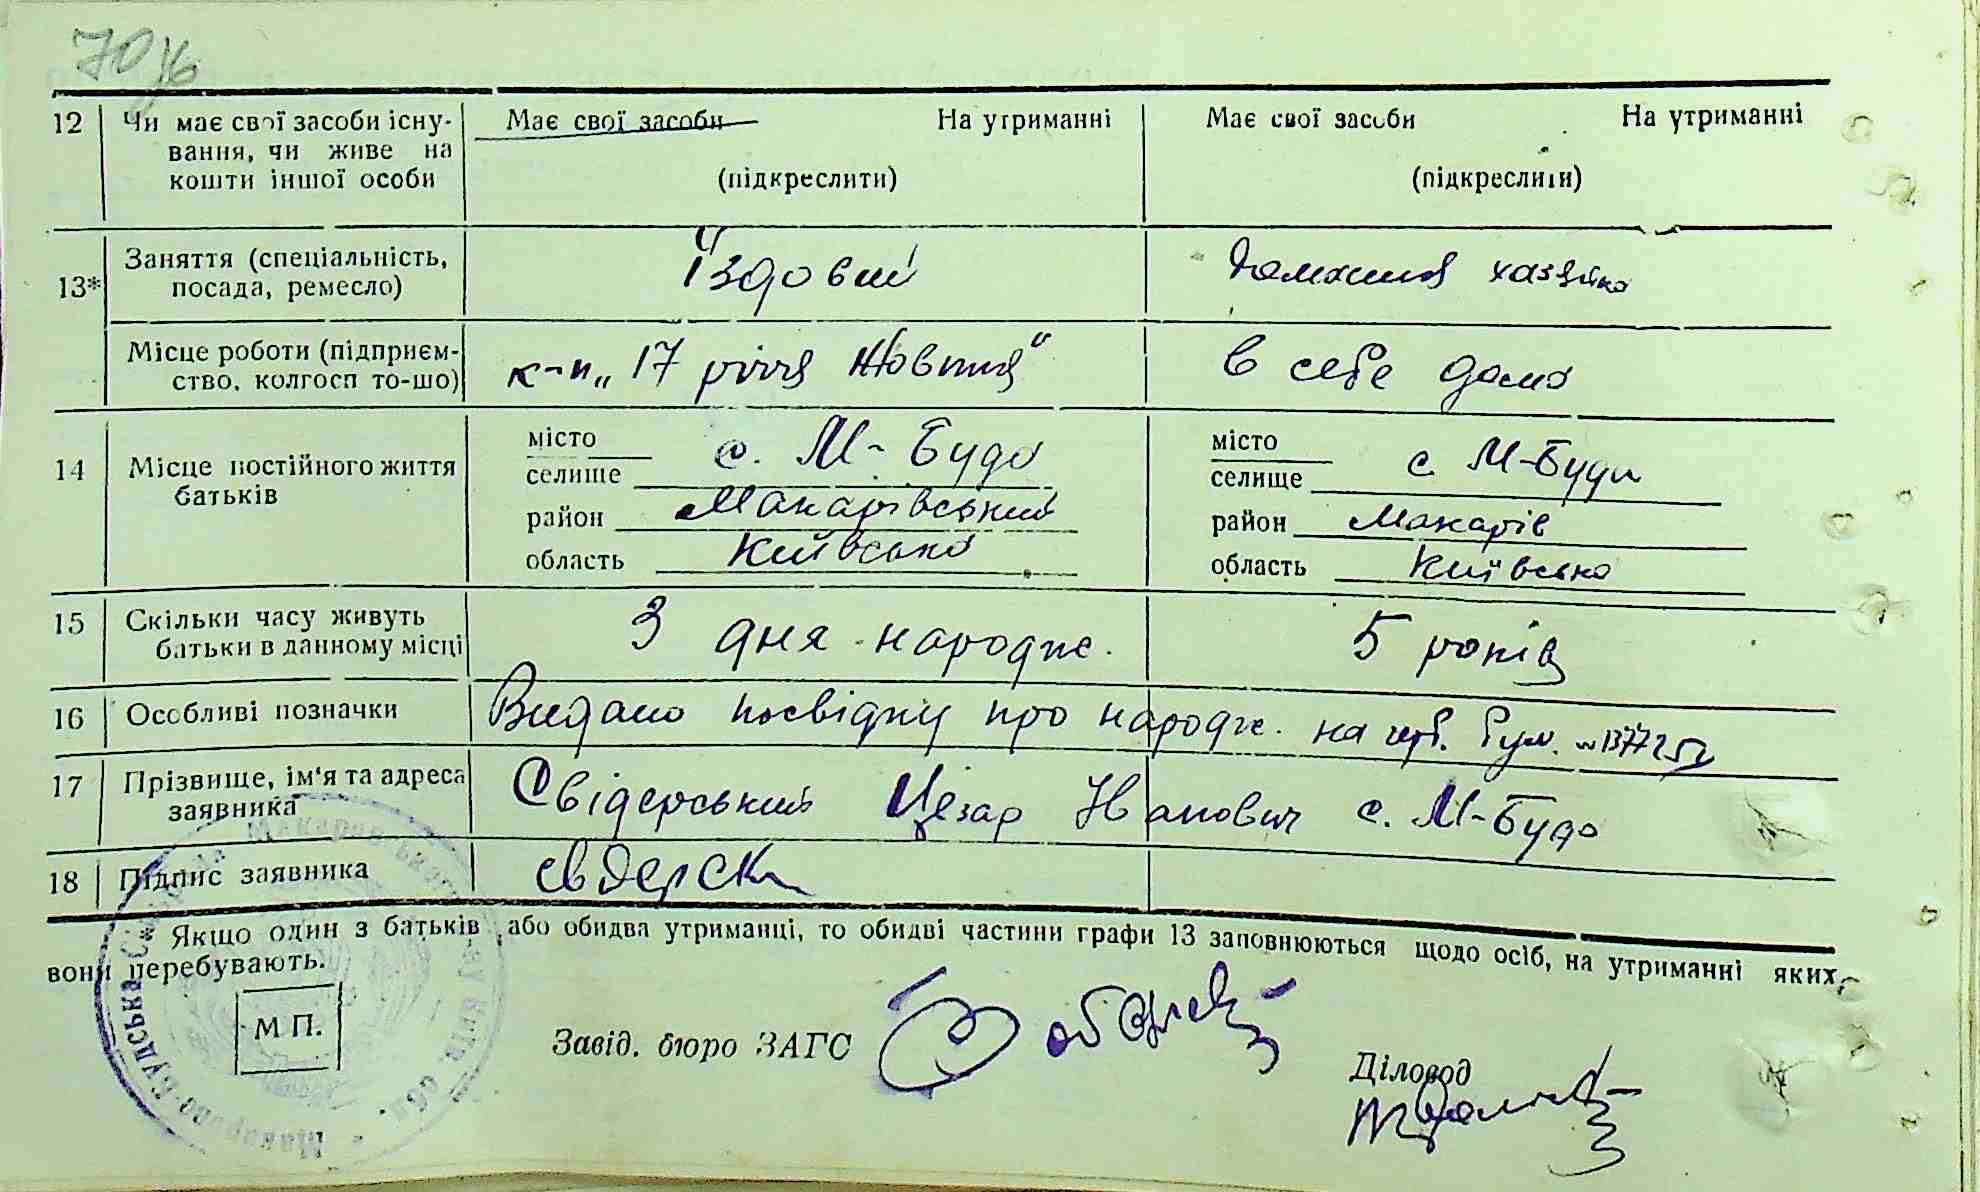 12 Чи має свої засоби існу- Має свої засоби На утриманні Має свої засоби На утриманні
вання, чи живе на
кошти іншої особи (підкреслити) (підкреслити)
13* Заняття (спеціальність, Їздовий Домашня хазяйка
посада, ремесло)
Місце роботи (підприєм- к-п „17 річчя Жовтня" В себе дома
ство, колгосп то-шо)
14 Місце постійного життя місто с. М-Буда місто с М-Буда
батьків селище селище
район Макарівський район Макарів
область Київська область Київська
15 Скільки часу живуть З дня народж. 5 років
батьки в данному місці
16 Особливі позначки Видано посвідку про народж. на
17 Прізвище, ім'я та адреса Свідерський Цезар Іванович с. М-Буда
заявника
18 Підпис заявника
* Якщо один з батьків або обидва утриманці, то обидві частини графи 13 заповнюються щодо осіб, на утриманні яких,
вони перебувають.
М П.
Завід. бюро ЗАГС
Діловод